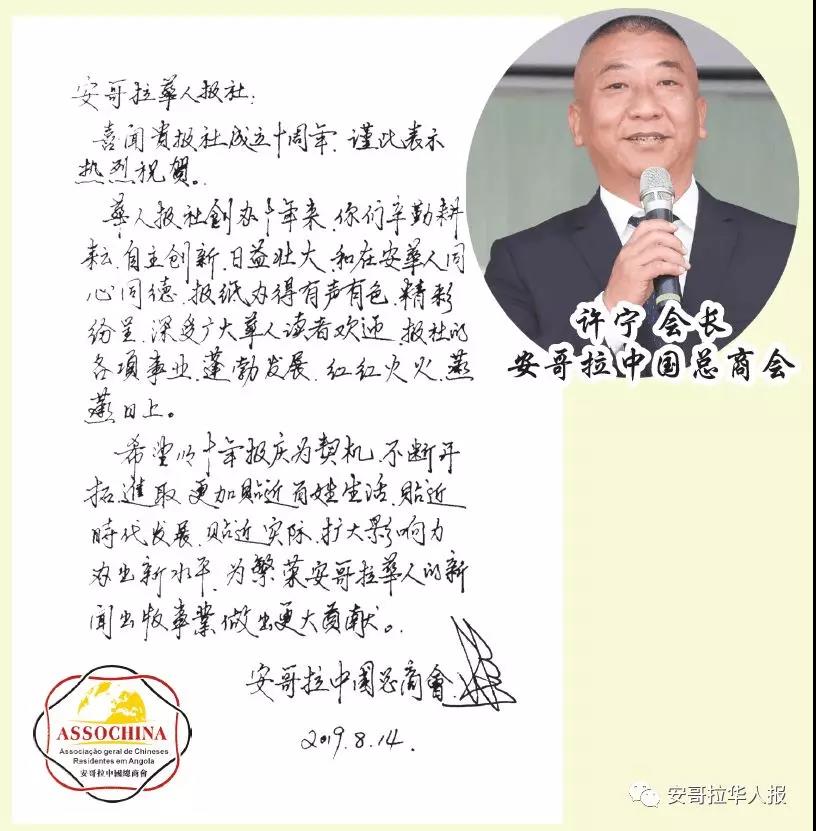 安哥拉華人报社：
喜闻贵报社成立十周年，谨此表示
热烈祝贺。
華人报社創办十年来，你们辛勤耕
耘，自主创新，日益壮大，和在安華人同
心同德，报纸办得有声有色，精彩
纷呈，深受广大華人读者欢迎，报社的
各項事业，蓬勃发展，红红火火，蒸
蒸日上。
希望以十年报庆为契机，不断开
拓進取，更加貼近百姓生活，貼近
時代发展，贴近实际，扩大影响力
办出新水平，为繁荣安哥拉華人的新
闻出版事業做出更大贡献。
安哥拉中国总商會
2019.8.14.
许宁 会长
安哥拉中国总商会
ASSOCHINA
Associação geral de Chineses
Residentes em Angola
安哥拉中國總商會
安哥拉华人报